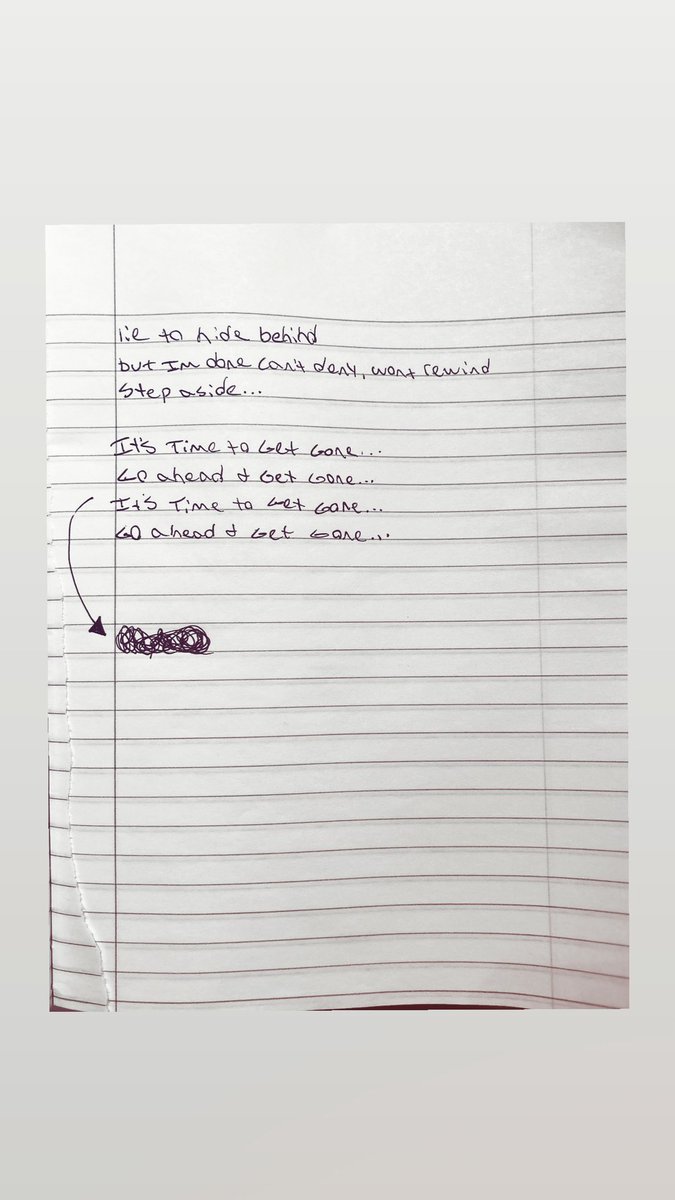 lie to hide behind
but Im done can't deny, wont rewind
Step aside...
It's Time to Get Gone...
Go ahead & Get Gone...
It's Time to Get Gone...
Go ahead & Get Gone...